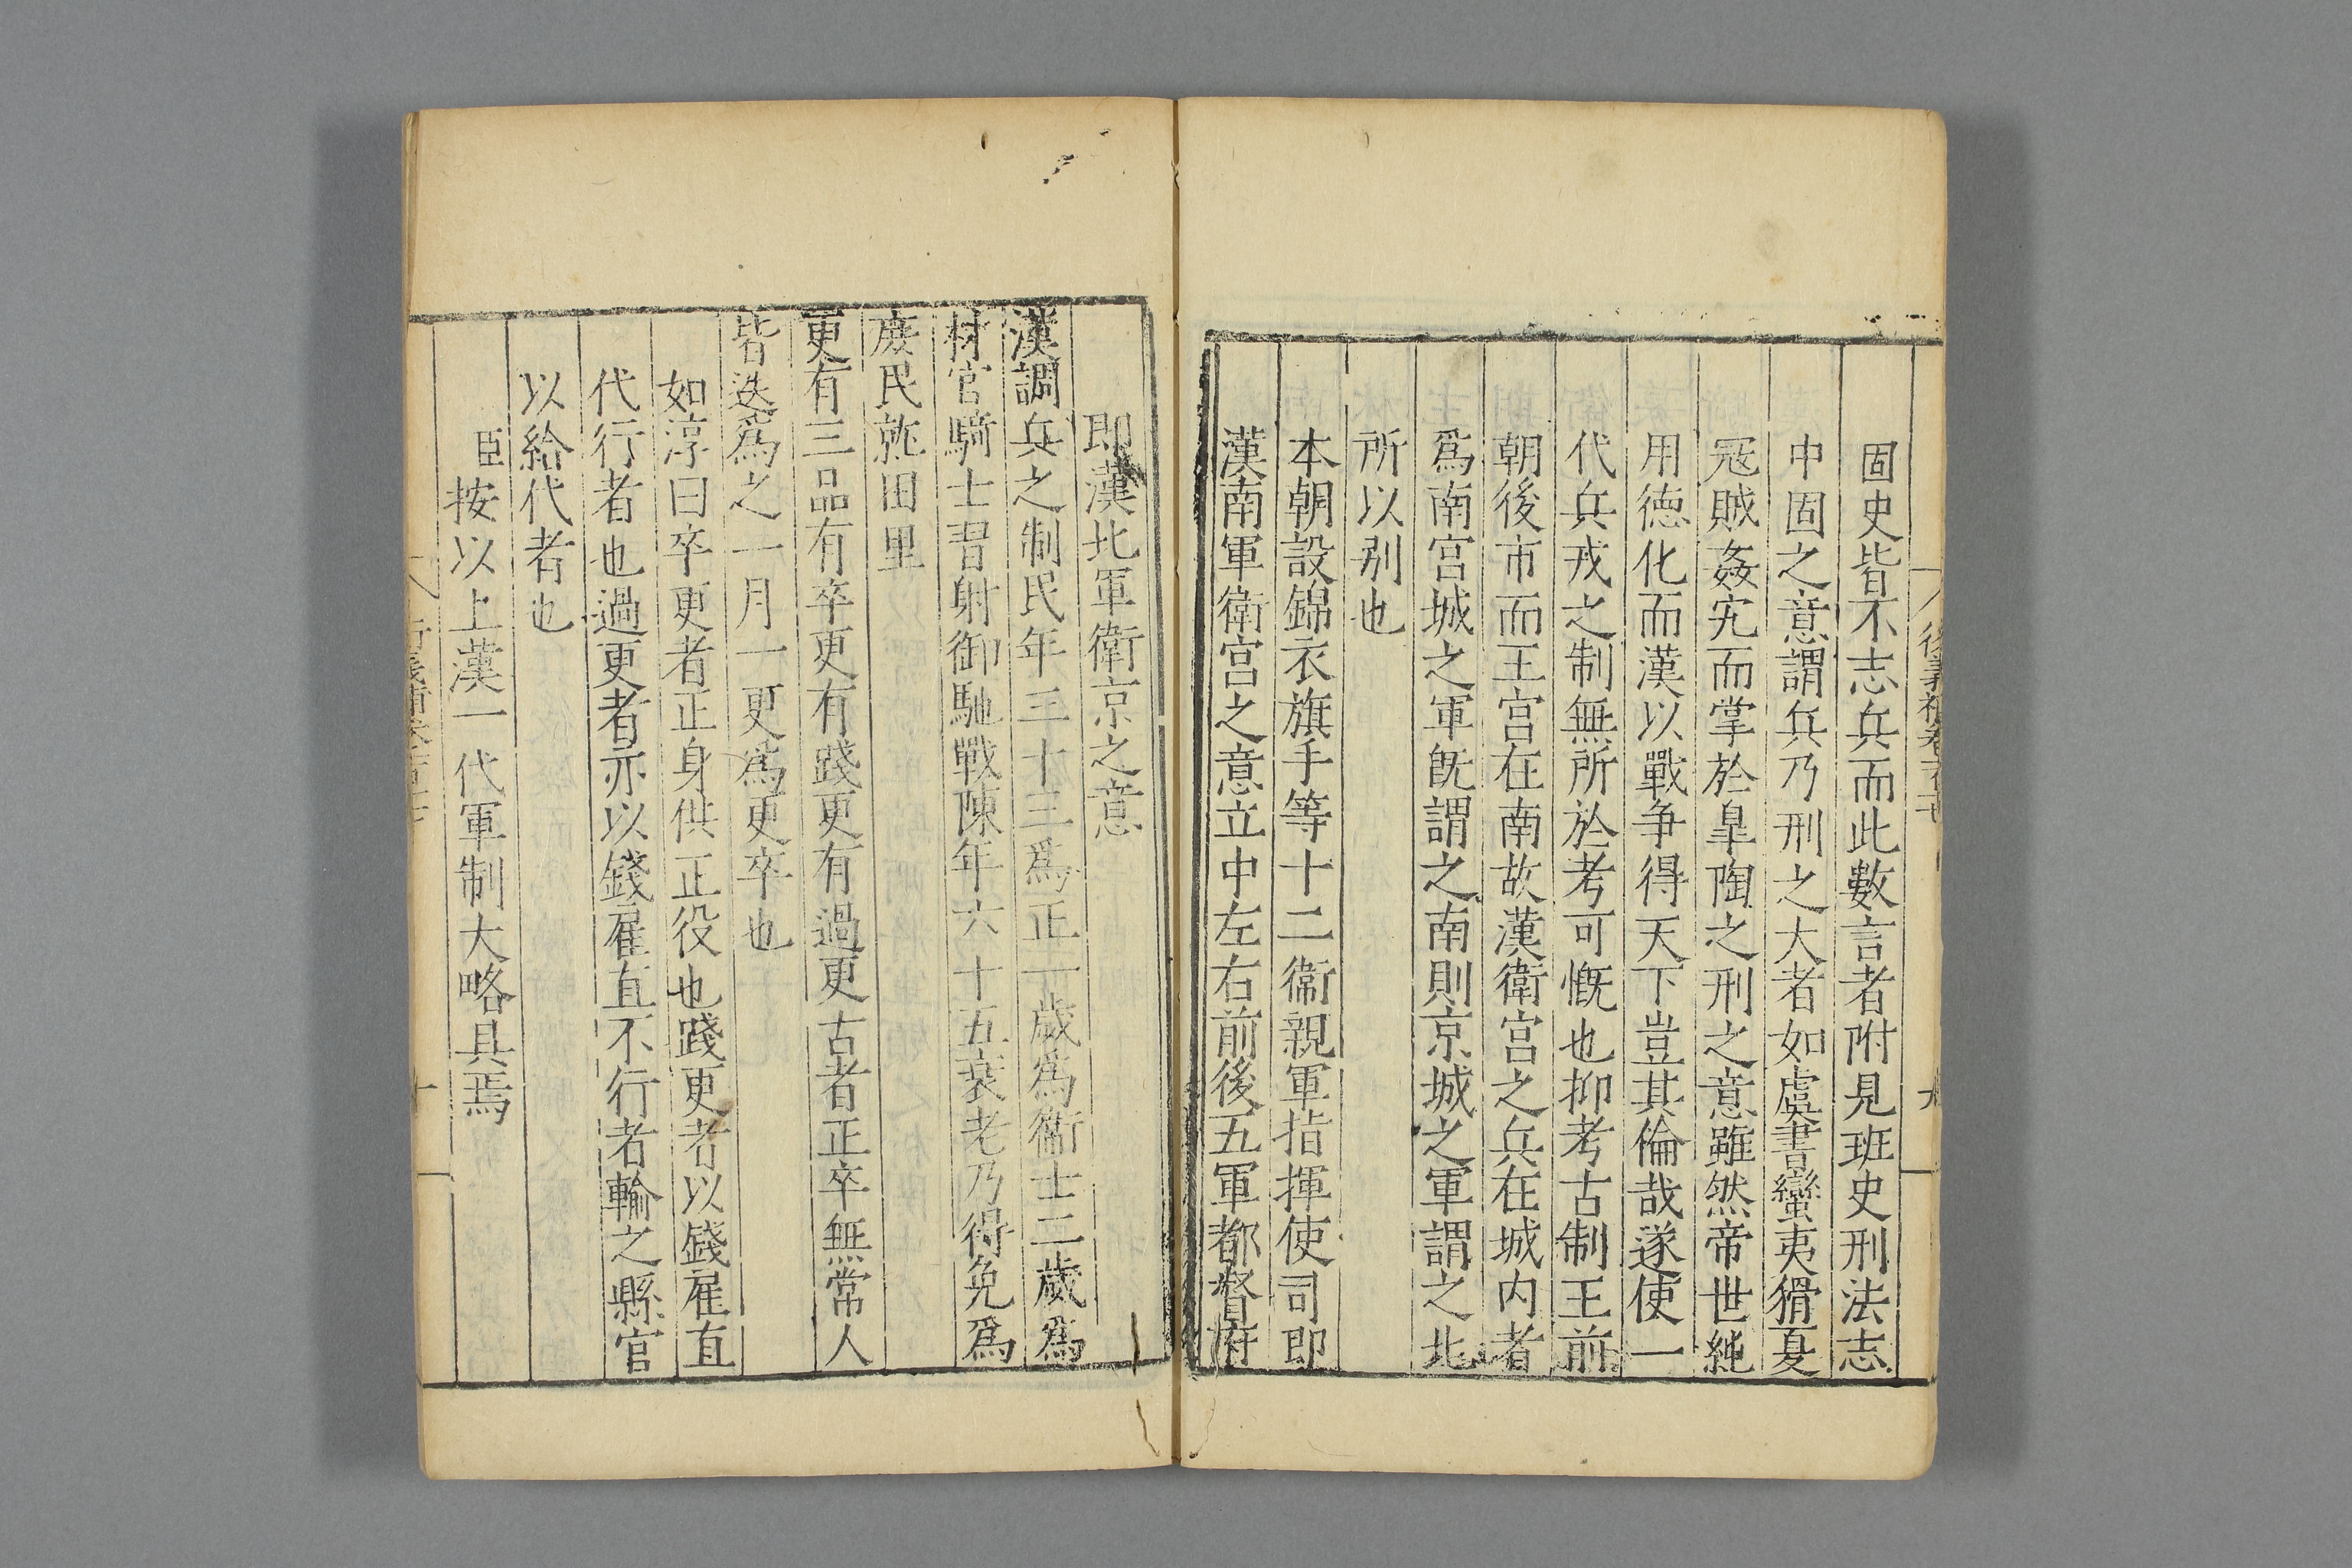 固史皆不志兵而此數言者附見班史刑法志
中固之意謂兵乃刑之大者如虞書蠻夷猾夏
冦賊姦宄而掌於臯陶之刑之意雖然帝世純
用德化而漢以戰争得天下豈其倫哉遂使一
代兵戎之制無所於考可慨也抑考古制王前
朝後市而王宫在南故漢衛宫之兵在城内者
爲南宫城之軍旣謂之南則京城之軍謂之北
所以别也
本朝設錦衣旗手等十二衞親軍指揮使司即
漢南軍衛宫之意立中左右前後五軍都督府
即漢北軍衛京之意
漢調兵之制民年二十三爲正一歲爲衞士二歲爲
材官騎士習射御馳戰陳年六十五衰老乃得免爲
庶民就田里
更有三品有卒更有踐更有過更古者正卒無常人
皆迭爲之一月一更爲更卒也
如淳曰卒更者正身供正役也踐更者以錢雇直
代行者也過更者亦以錢雇直不行者輸之縣官
以給代者也
臣按以上漢一代軍制大略具焉